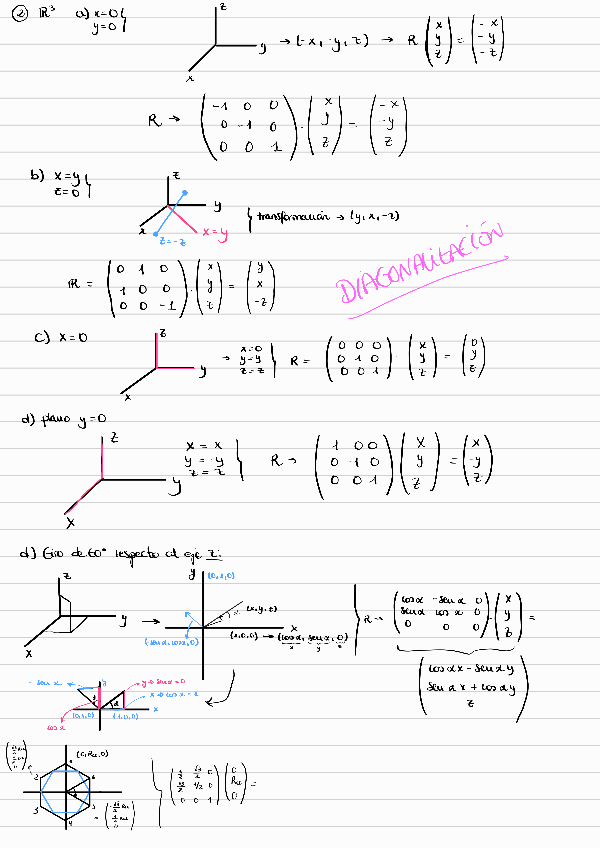 ② ℝ³ a) x=0
y=0 }
z
y
x
→ (-x, -y, z) → R (x y z) = (-x -y -z)
R → (-1 0 0
0 -1 0
0 0 1) · (x y z) = (-x -y z)
b) x=y
z=0 }
z
y
x
x=y
z=-z
} transformación → (y, x, -z)
R = (0 1 0
1 0 0
0 0 -1) · (x y z) = (y x -z)
DIAGONALIZACIÓN
c) x=0
z
y
x
→ x=0
y=y
z=z }
R = (0 0 0
0 1 0
0 0 1) · (x y z) = (0 y z)
d) plano y=0
z
y
x
x = x
y = -y
z = z
R → (1 0 0
0 -1 0
0 0 1) (x y z) = (x -y z)
d) Giro de 60° respecto al eje z:
z
y
x
→
y
(0,1,0)
(x,y,z)
x
(-senα, cosα, 0)
(1,0,0) → (cosα, senα, 0)
x y z
R → (cosα -senα 0
senα cosα 0
0 0 0) · (x y z) =
(cosα x - senα y
senα x + cosα y
z)
-senα
y → senα = 0
x → cosα = 1
α
x
(0,1,0) (1,0,0)
cosα
(0, Ru, 0)
2
3
4
5
6
0
Ru
0
=